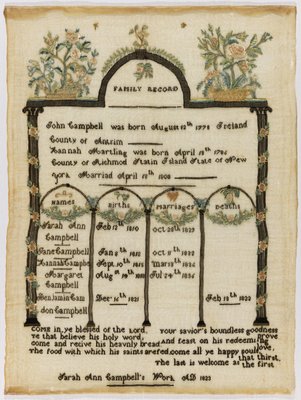 FAMILY RECORD
John Campbell was born August 12th 1772 Ireland
County of Antrim
Hannah Martling was born April 17th 1785
County of Richmod Statin Island State of New
york Married April 15th 1808
Names Births Marriages Deaths
Sarah Ann Feb 12th 1810 Oct 28th 1829
Campbell
Jane Campbell Jan 8th 1812 Oct 8th 1832
Hannah Camp Sept 10th 1815 Mar 13th 1834
Margaret Aug 1819 Jul 24th 1836
Campbell
Benjamin Cam Dec 16th 1821 Feb 19th 1822
don Campbell
Come in, ye blessed of the Lord, your savior's boundless goodness
ye that believe his holy word; prove
come and recive his heavnly bread and feast on his redeeming love,
The food with which his saints are fed. come all ye happy souls that thirst,
the last is welcome as the first
Sarah Ann Campbell's Work AD 1823